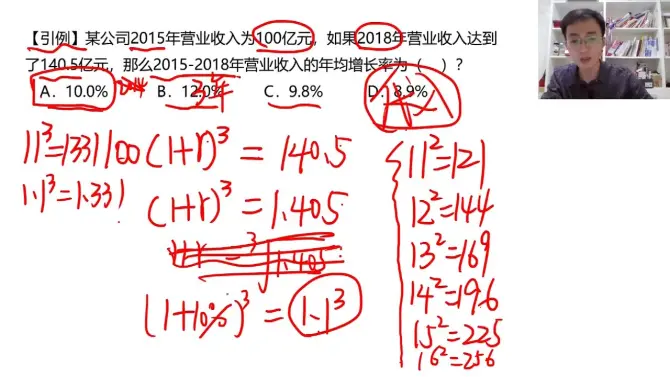 【引例】某公司2015年营业收入为100亿元，如果2018年营业收入达到
了140.5亿元，那么2015-2018年营业收入的年均增长率为（ ）？
A．10.0% B．12.0% C．9.8% D．8.9%
3年
11³=1331 100(1+r)³ = 140.5
1.1³=1.331 (1+r)³ = 1.405
1.405
(1+10%)³ = 1.1³
11²=121
12²=144
13²=169
14²=196
15²=225
16²=256